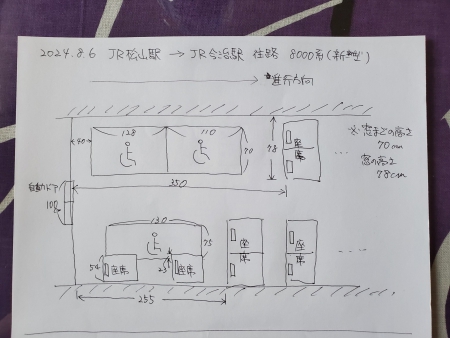 2024.8.6 JR松山駅 → JR今治駅 往路 8000系(新型)
進行方向
128 110
40 70 78 座席
※窓までの高さ
70cm
窓の高さ
78cm
350
自動ドア
108
130
75 座席 座席
54 座席 23 座席
255